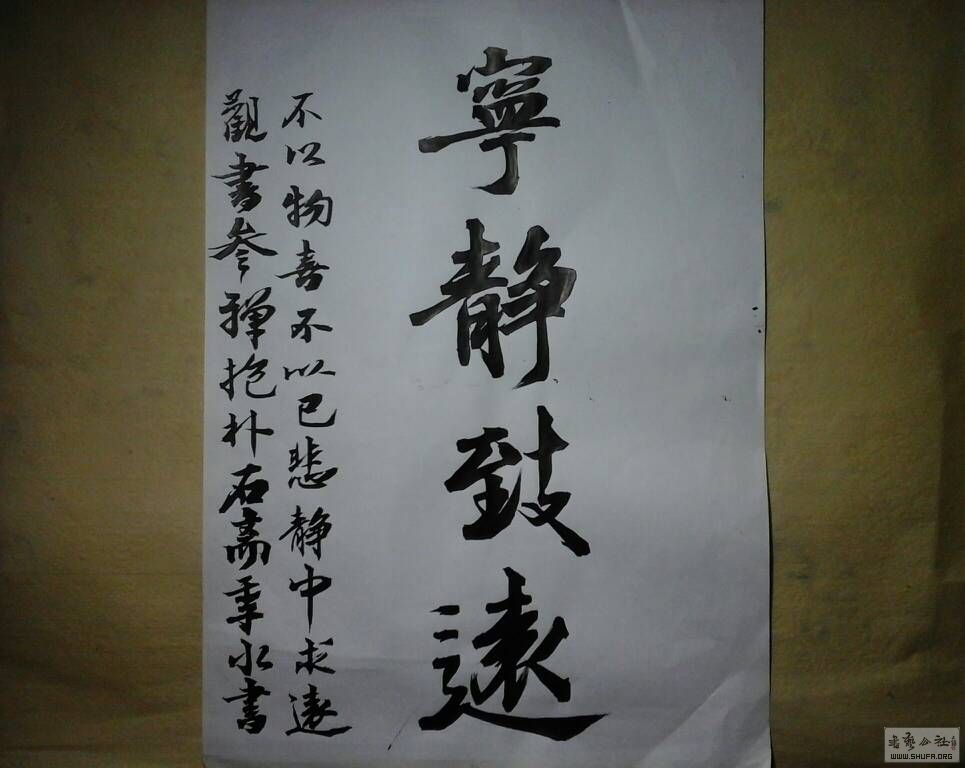 寧靜致遠
不以物喜不以己悲静中求遠
觀書叁禪抱朴石斋季水書
书艺公社
WWW.SHUFA.ORG